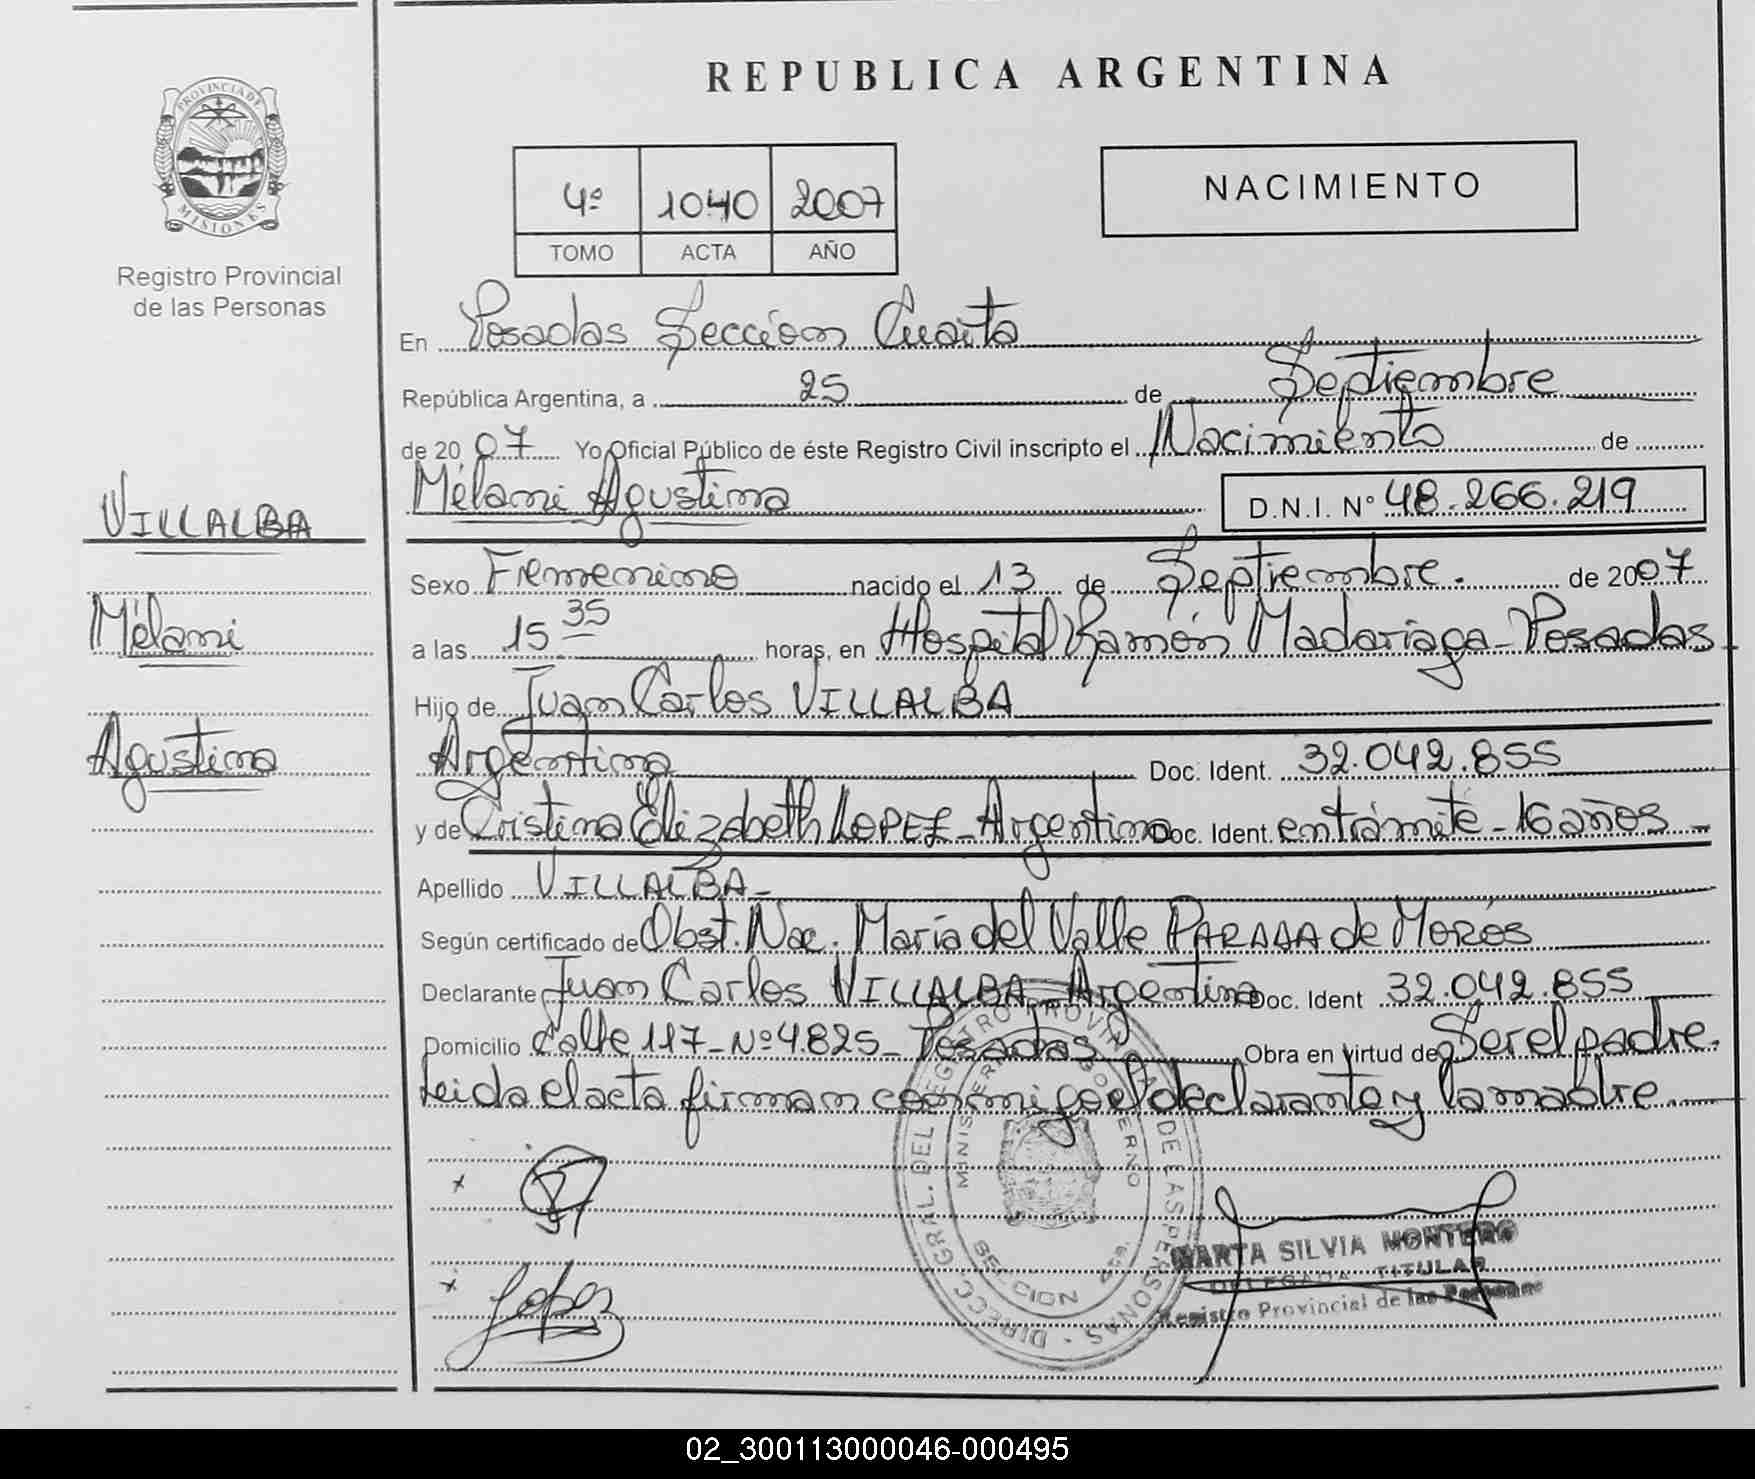 REPUBLICA ARGENTINA
PROVINCIA DE
MISIONES
Registro Provincial
de las Personas
4º 1040 2007
TOMO ACTA AÑO
NACIMIENTO
En Posadas Sección Cuarta
República Argentina, a 25 de Septiembre
de 2007 Yo Oficial Público de éste Registro Civil inscripto el Nacimiento de
Mélani Agustina D.N.I. Nº 48.266.219
VILLALBA
Mélani
Agustina
Sexo Femenino nacido el 13 de Septiembre. de 2007
a las 15 35 horas, en Hospital Ramón Madariaga - Posadas
Hijo de Juan Carlos VILLALBA
Argentina Doc. Ident. 32.042.855
y de Cristina Elizabeth LOPEZ - Argentina Doc. Ident. en trámite - 16 años -
Apellido VILLALBA -
Según certificado de Obst. Nac. María del Valle PARADA de MORES
Declarante Juan Carlos VILLALBA - Argentina Doc. Ident 32.042.855
Domicilio Calle 117 - Nº 4.825 - Posadas Obra en virtud de Ser el padre.
Leida el acta firman conmigo el declarante y la madre.
x
x Lopez
DIRECC. GRAL. DEL REGISTRO PROVINCIAL DE LAS PERSONAS
MINISTERIO GOBIERNO
MARTA SILVIA MONTERO
DELEGADA TITULAR
Registro Provincial de las Personas
02_300113000046-000495